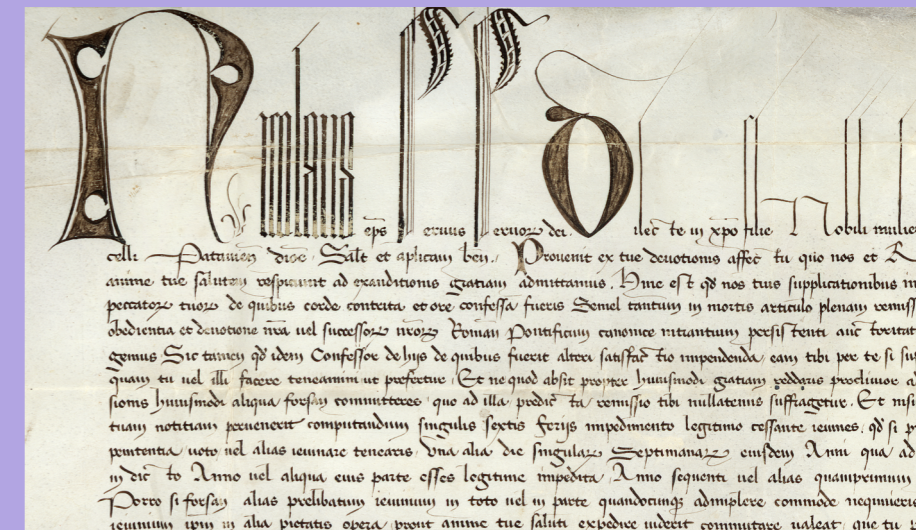 Nicolaus eps Servus servorꝫ dei. Dilect te in xpo filie Nobili mulie
celli Pataviен dioc̄ Salt et aplicam ben. Provenit ex tue devotionis affec tu quo nos et R
anime tue salutem respiciunt ad exauditionis gratiam admittamus. Hinc est qd nos tuis supplicationibus in
peccatorꝫ tuorꝫ de quibus corde contrita et ore confessa fueris Semel tantum in mortis articulo plenam remiss
obedientia et devotione nra vel successorꝫ nrorꝫ Roman Pontificum canonice intrantium persistenti auctoritat
gemus Sic tamen qd idem Confessor de hys de quibus fuerit alteri satisfactio impendenda eam tibi per te si su
quam tu vel illi facere teneamini ut prefertur. Et ne quod absit propter huiusmodi gratiam reddaris proclivior a
sionis huiusmodi aliqua forsan committeres quo ad illa predicta remissio tibi nullatenus suffragetur. Et nisi
tuam notitiam pervenerit computandum singulis sextis ferijs impedimento legitimo cessante ieiunes. qd si p
penitentia voto vel alias ieiunare tenearis una alia die singularꝫ Septimanarꝫ eiusdem Anni qua ad
in dicto Anno vel aliqua eius parte esses legitime impedita Anno sequenti vel alias quamprimum
Porro si forsan alias prelibatum ieiunium in toto vel in parte quandocunqꝫ adimplere commode nequiveri
ieiunium ipm in alia pietatis opera prout anime tue saluti expedire viderit commutare valeat que tu p